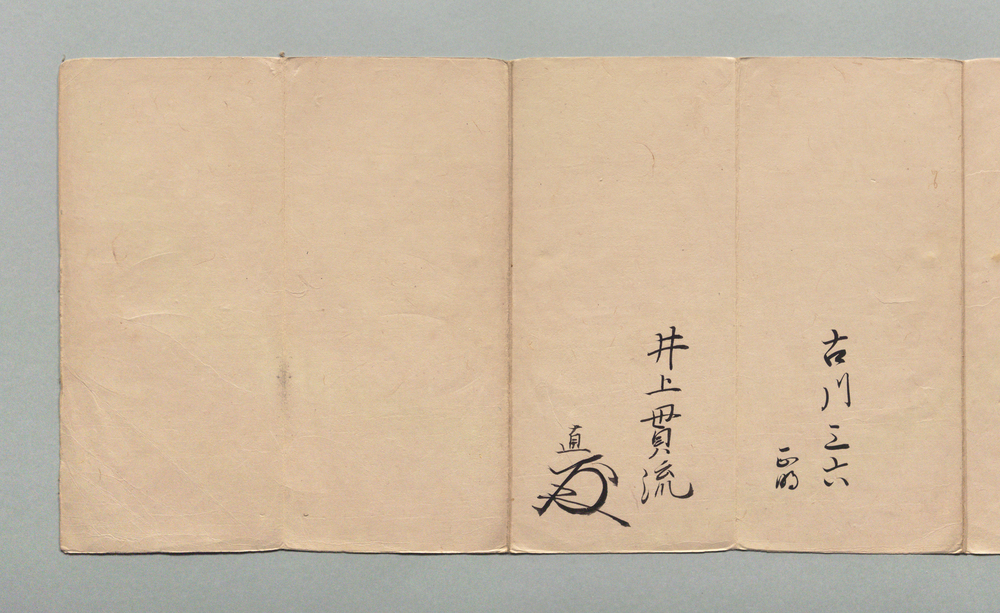 古川三六
正明
井上貫流
直